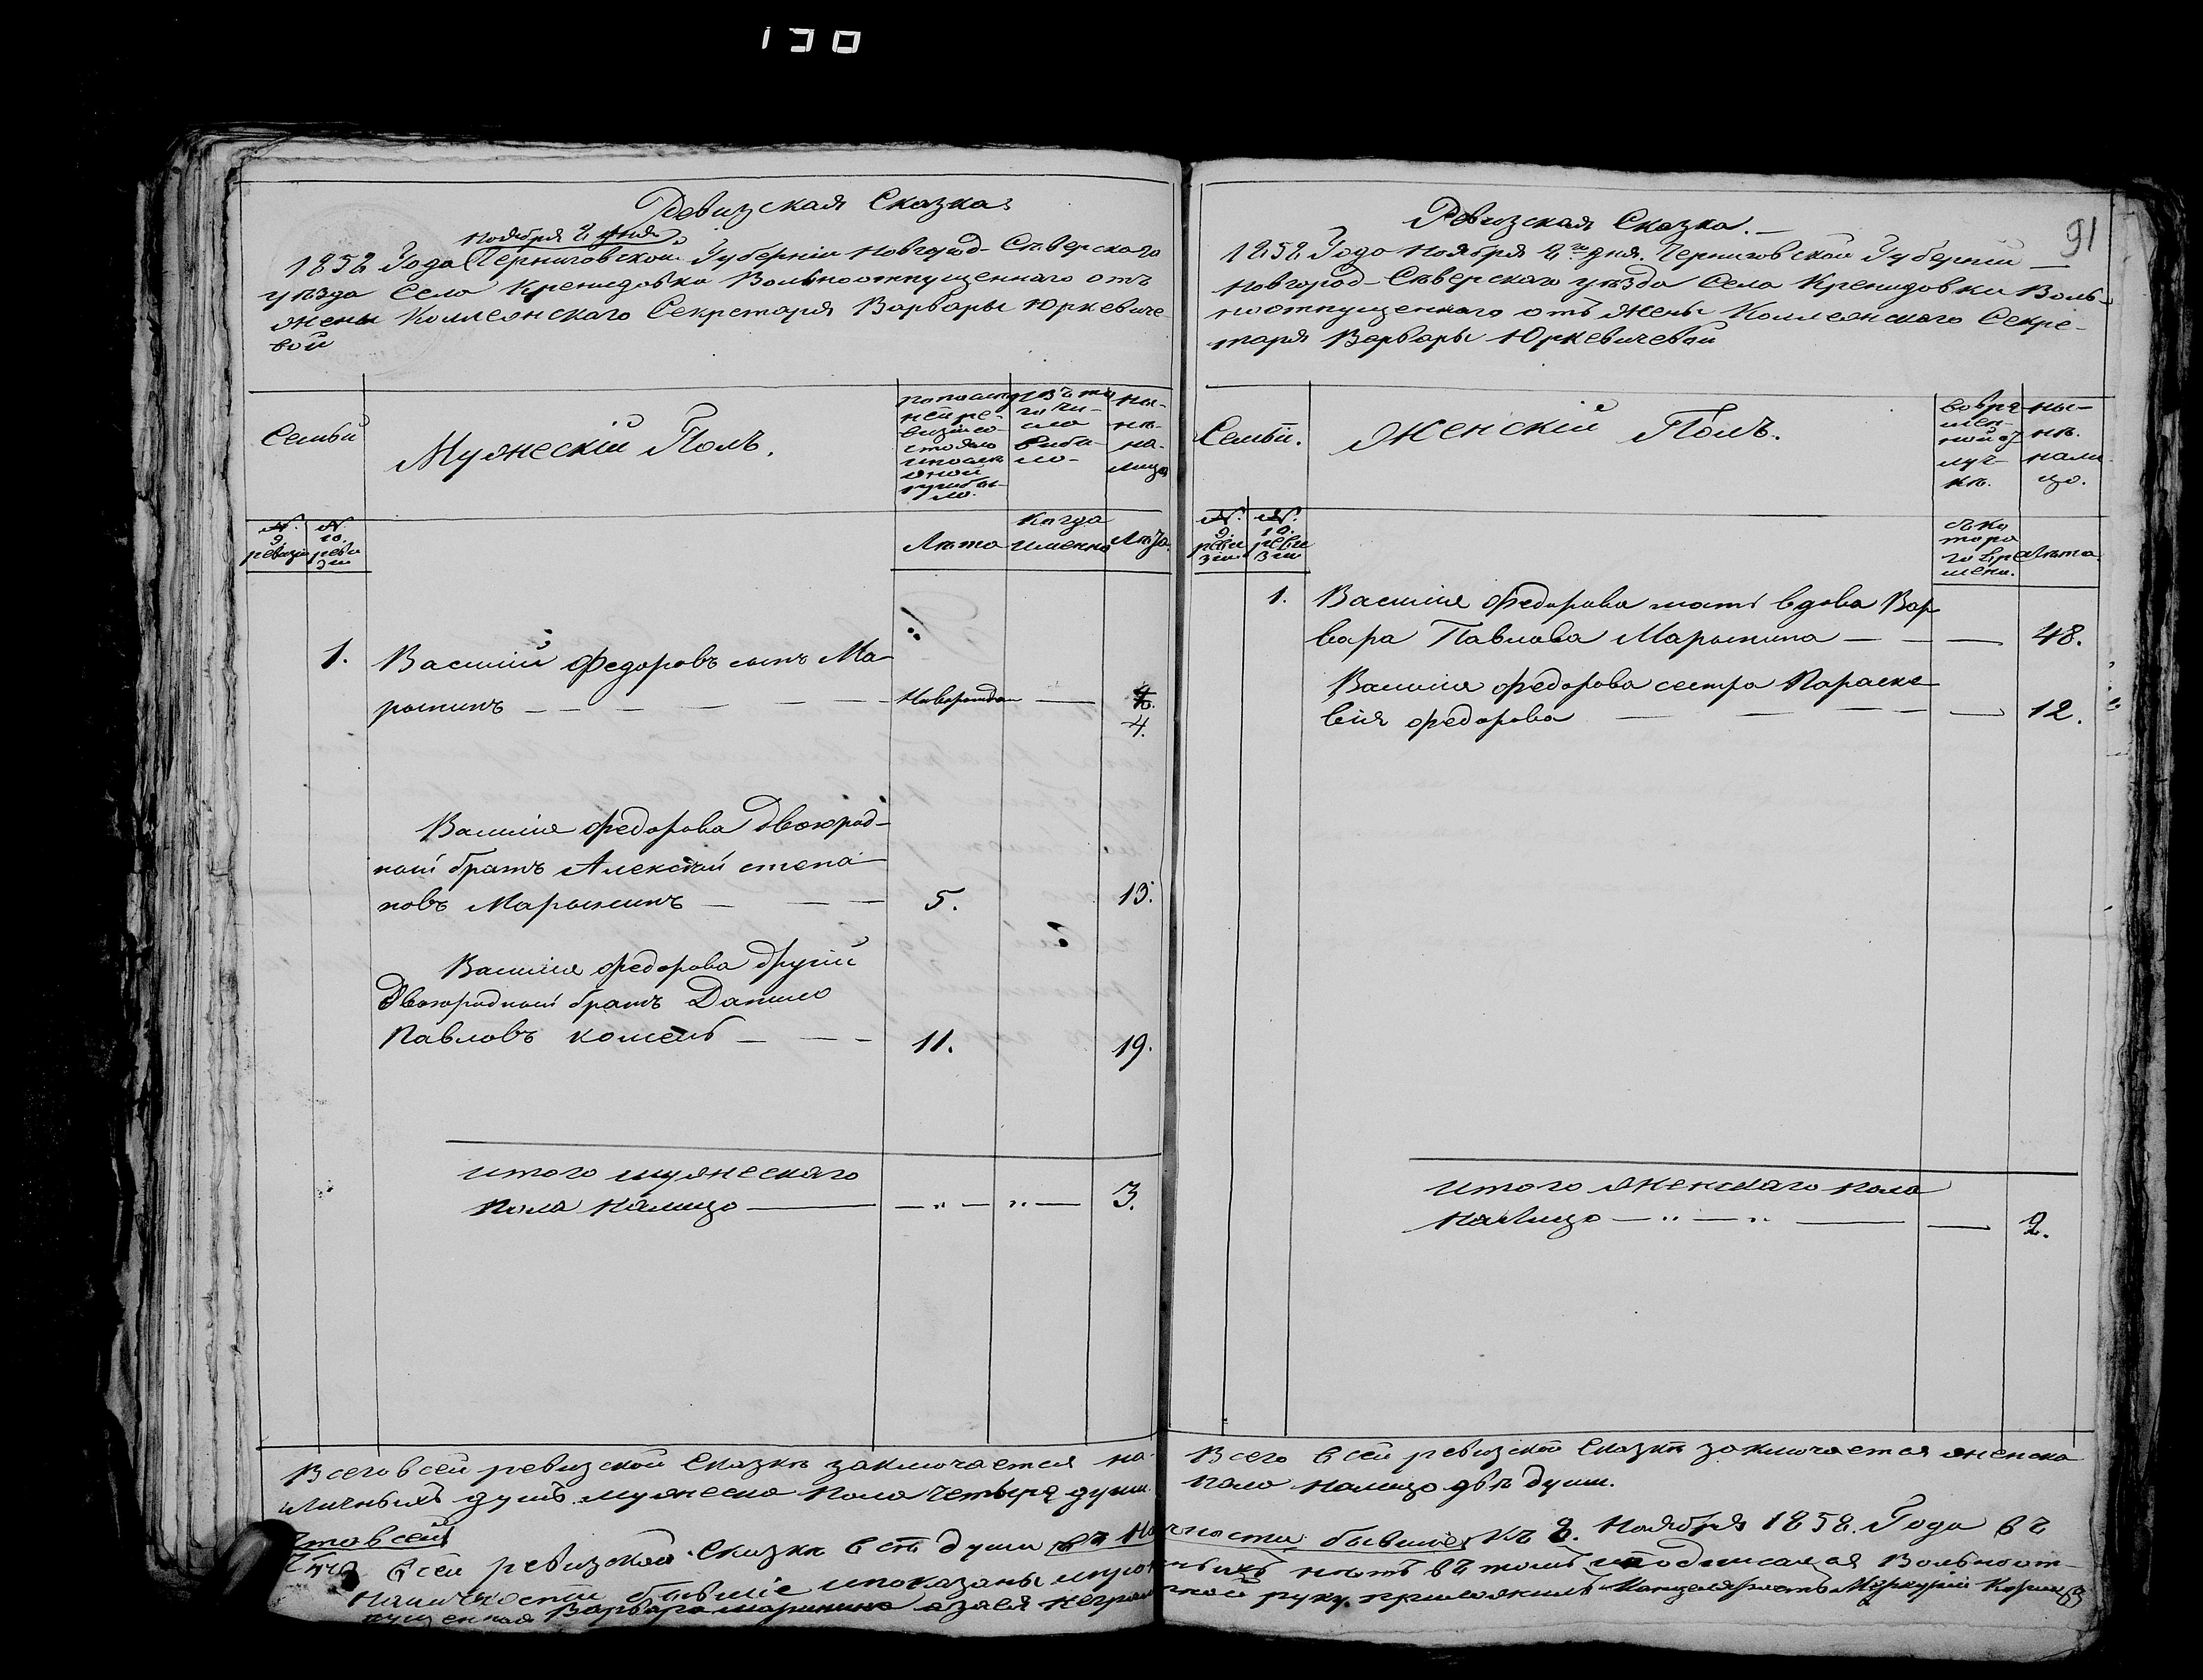 130
Ревизская Сказка.
Ноября 2 дня
1858 Года Черниговской Губерніи Новгород-Северского
уезда Села Кренидовки Вольноотпущеннаго отъ
жены Коллежскаго Секретаря Варвары Юркевиче-
вой
Семьи
Мужескій Полъ.
по послед
ней ре-
визіи со-
стояло
и после
оной
прибы-
ло.
изъ то
го чи-
сла
выбы-
ло
ны-
не
на-
лицо
№.
9.
ревизіи
№.
10.
реви
зіи
Лета
Когда
именно
Лета.
1. Василий Федоровъ сынъ Ма-
рытинъ — — — — Новорожден — 4.
4.
Василія Федорова двоюрод-
ный братъ Алексей Степа-
новъ Марытинъ — — — 5. 13.
Василія Федорова другій
двоюродный братъ Данило
Павловъ — — — 11. 19.
Итого мужескаго
пола налицо — 3.
Всего въ сей ревизской Сказке заключается на-
личныхъ душъ мужеска пола четыре души
Ревизская Сказка.—
91
1858 Года Ноября 2го дня. Черниговской Губерніи —
Новгород-Северскаго уезда Села Кренидовки Воль-
ноотпущеннаго отъ Жены Коллежскаго Секре-
таря Варвары Юркевичевой
Семьи.
Женскій Полъ.
во вре
мен-
ной от
луч-
ке.
ны-
не.
нали
цо.
№.
9.
реви
зіи
№.
10.
реви
зіи
съ ко
тора
го вре
мени.
Лета
1. Василія Федорова мать вдова Вар
вара Павлова Марытина — — — 48.
Василія Федорова сестра Параске-
вія Федорова — — — — 12.
Итого женскаго пола
налицо — 2.
Всего в сей ревизской Сказке заключается женска
пола налицо две души.
Что в сей
Что в сей ревизской Сказке все души въ наличности бывшія къ 2. Ноября 1858. Года въ
наличности бывшіе и показаны и нетъ въ томъ и подписалася Вольноот-
пущенная Варвара Марытина а за ея неграмотной руку приложилъ Канцеляристъ Меркурій